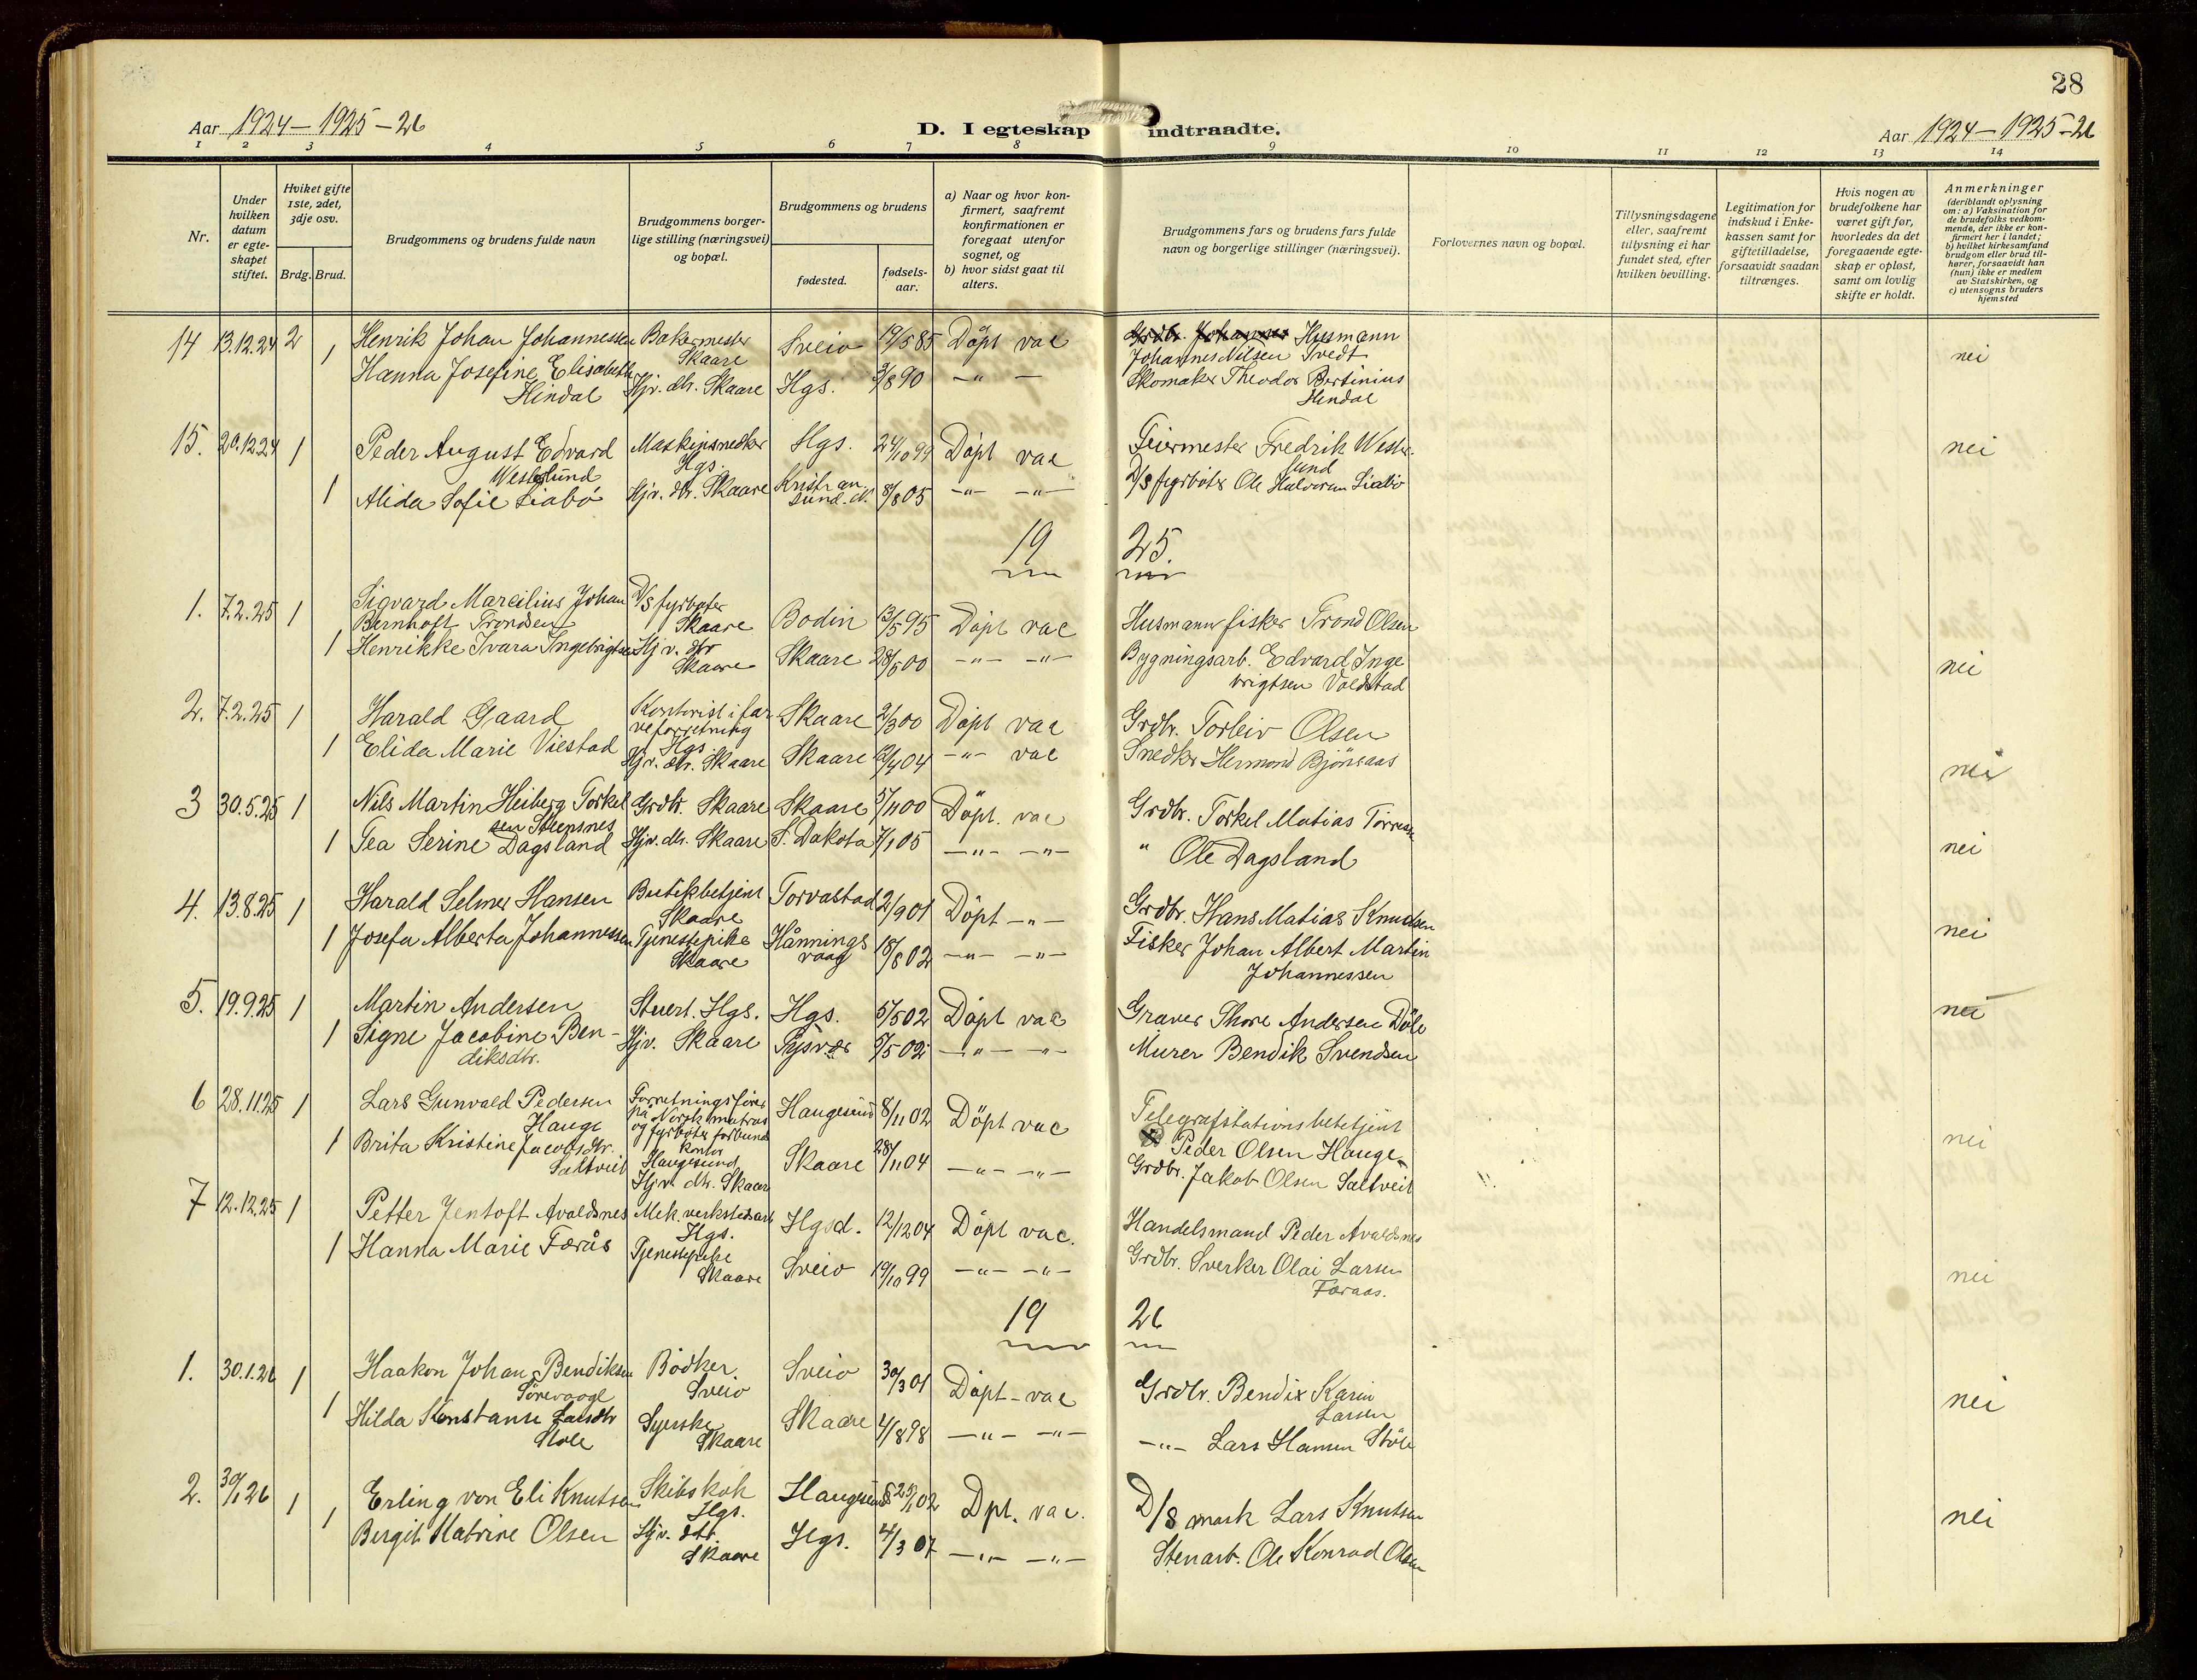 28
Aar 1924 – 1925 – 26
D. I egteskap indtraadte.
Aar 1924 – 1925 – 26
1 2 3 4 5 6 7 8 9 10 11 12 13 14
Nr.
Under hvilken datum er egte- skapet stiftet.
Hviket gifte 1ste, 2det, 3dje osv.
Brdg. Brud.
Brudgommens og brudens fulde navn
Brudgommens borger- lige stilling (næringsvei) og bopæl.
Brudgommens og brudens
fødested.
fødsels- aar.
a) Naar og hvor kon- firmert, saafremt konfirmationen er foregaat utenfor sognet, og
b) hvor sidst gaat til alters.
Brudgommens fars og brudens fars fulde navn og borgerlige stillinger (næringsvei).
Forlovernes navn og bopæl.
Tillysningsdagene eller, saafremt tillysning ei har fundet sted, efter hvilken bevilling.
Legitimation for indskud i Enke- kassen samt for giftetilladelse, forsaavidt saadan tiltrænges.
Hvis nogen av brudefolkene har været gift før, hvorledes da det foregaaende egte- skap er opløst, samt om lovlig skifte er holdt.
Anmerkninger (deriblandt oplysning om: a) Vaksination for de brudefolks vedkom- mende, der ikke er kon- firmert her i landet; b) hvilket kirkesamfund brudgom eller brud til- hører, forsaavidt han (hun) ikke er medlem av Statskirken, og c) utensogns bruders hjemsted
14 13.12.24 2 Henrik Johan Johannessen Bakermester Skaare Sveio 19/5 85 Döpt vac Grdbr. Johannes Husmann Johannes Nilsen Tvedt nei
1 Hanna Josefine Elisabeth Hindal Hjv. dtr. Skaare Hgs. 3/8 90 –"– Skomaker Theodor Bertinius Hindal
15. 20.12.24 1 Peder August Edvard Westerlund Maskinsnedker Hgs. Hgs. 24/10 99 Döpt vac Feiermester Fredrik Westerlund nei
1 Alida Sofie Liabö Hjv. dtr. Skaare Kristiansund. N. 8/8 05 –"– –"– D/S fyrböter Ole Halvorsen Liabö
19 25.
1. 7.2.25 1 Sigvard Marcilius Johan Bernhoft Trondsen D/S fyrböter Skaare Bodin 13/5 95 Döpt vac Husmann fisker Trond Olsen
1 Henrikke Ivara Ingebrigtsen Hjv. dtr Skaare Skaare 28/5 00 –"– –"– Bygningsarb. Edvard Ingebrigtsen Voldstad nei
2. 7.2.25 1 Harald Gaard Kontorist i farveforretning Hgs Skaare 2/3 00 Döpt vac Grdbr. Torleiv Olsen
1 Elida Marie Viestad Hjv. dtr. Skaare Skaare 12/4 04 –"– vac Snedker Hermond Bjönsaas nei
3 30.5.25 1 Nils Martin Heiberg Torkelsen Steensnes Grdbr. Skaare Skaare 5/11 00 Döpt. vac Grdbr. Torkel Matias Törresen
1 Tea Serine Dagsland Hjv. dtr. Skaare S. Dakota 7/1 05 –"– –"– " Ole Dagsland nei
4. 13.8.25 1 Harald Selmer Hansen Butikbetjent Skaare Torvastad 2/9 01 Döpt –"– Grdbr. Hans Matias Knudsen
1 Josefa Alberta Johannessen Tjenestepike Skaare Hånningsvaag 18/8 02 –"– –"– Fisker Johan Albert Martin Johannessen nei
5. 19.9.25 1 Martin Andersen Stuert. Hgs. Hgs. 5/5 02 Döpt vac Graver Thore Andersen Döle nei
1 Signe Jacobine Bendiksdtr. Hjv. Skaare Tysvær 9/5 02 –"– –"– Murer Bendik Svendsen
6 28.11.25 1 Lars Gunvald Pedersen Hauge Forretningsförer på Norsk matros og fyrböter forbunds kontor Haugesund Haugesund 8/11 02 Döpt vac Telegrafstationsbetetjent Peder Olsen Hauge
1 Brita Kristine Jacobsdtr. Saltveit Hjv. dtr. Skaare Skaare 28/11 04 –"– –"– Grdbr. Jakob Olsen Saltveit nei
7 12.12.25 1 Petter Jentoft Avaldsnes Mek. verkstedsarb Hgs. Hgsd. 12/12 04 Döpt vac. Handelsmand Peder Avaldsnes
1 Hanna Marie Færås Tjenestepike Skaare Sveio 19/10 99 –"– –"– Grdbr. Sverker Olai Larsen Færaas. nei
19 26
1. 30.1.26 1 Haakon Johan Bendiksen Sörevaage Bödker. Sveio Sveio 30/3 01 Döpt – vac Grdbr. Bendix Karin Larsen nei
1 Hilda Konstanse Larsdtr Stöle Syerske Skaare Skaare 4/8 98 –"– –"– –"– Lars Hansen Stöle
2. 30/1 26 1 Erling von Eli Knutsen Skibskok Hgs. Haugesund 25/1 02 Dpt. vac. D/S mask Lars Knutsen nei
1 Bergit Katrine Olsen Hjv. dtr. Skaare Hgs. 4/3 07 –"– –"– Stenarb. Ole Konrad Olsen